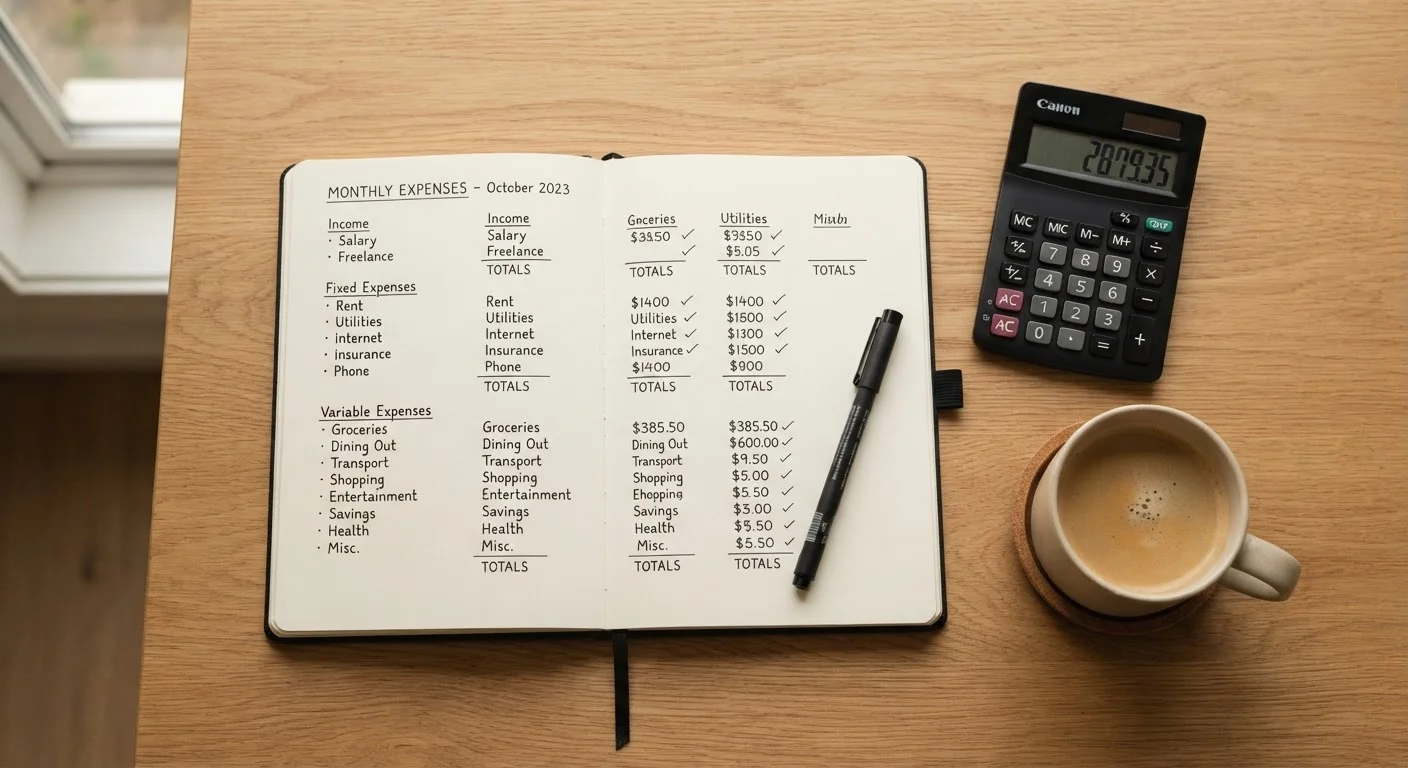 MONTHLY EXPENSES – October 2023
Income
· Salary
· Freelance
Fixed Expenses
· Rent
· Utilities
· internet
· insurance
· Phone
Variable Expenses
· Groceries
· Dining Out
· Transport
· Shopping
· Entertainment
· Savings
· Health
· Misc.
Income
Salary
Freelance
TOTALS
Rent
Utilities
Internet
Insurance
Phone
TOTALS
Groceries
Dining Out
Transport
Shopping
Entertainment
Savings
Health
Misc.
TOTALS
Gnceries Utilities
✓
✓ $5.05 ✓
TOTALS TOTALS TOTALS
$1400 ✓ $1400 ✓
Utilities ✓ $1500 ✓
Internet ✓ $1300 ✓
Insurance ✓ $1500 ✓
$1400 $900
TOTALS TOTALS
$385.50 $385.50 ✓
Dining Out $600.00 ✓
Transport $9.50 ✓
Shopping $5.00 ✓
Ehopping $5.50 ✓
Savings $3.00 ✓
Health ✓
Misc. $5.50 ✓
TOTALS TOTALS
2879.35
MC MC M- M+ %
7 8 9 ÷
+/- 4 5 6 ×
AC 1 2 3 −
AC 0 . = +